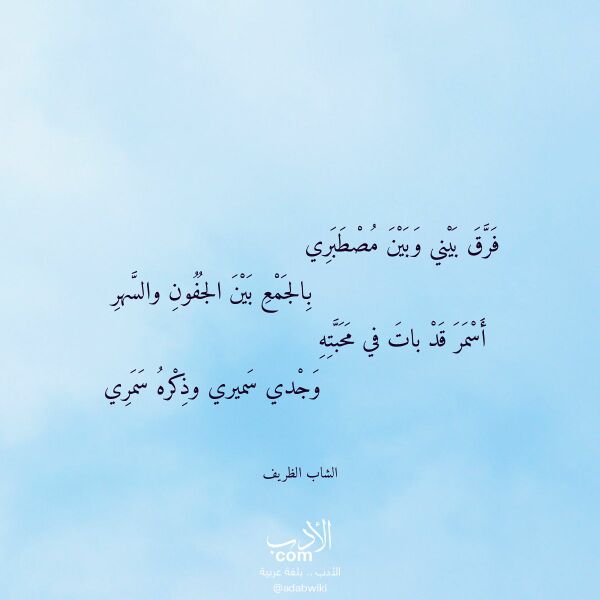 فَرَّقَ بَيْني وَبَيْنَ مُصْطَبَرِي
بِالجَمْعِ بَيْنَ الجُفُونِ والسَّهرِ
أَسْمَرَ قَدْ باتَ في مَحَبَّتِهِ
وَجْدي سَميري وذِكْرهُ سَمَرِي
الشاب الظريف
الأدب
.com
الأدب .. بلغة عربية
@adabwiki